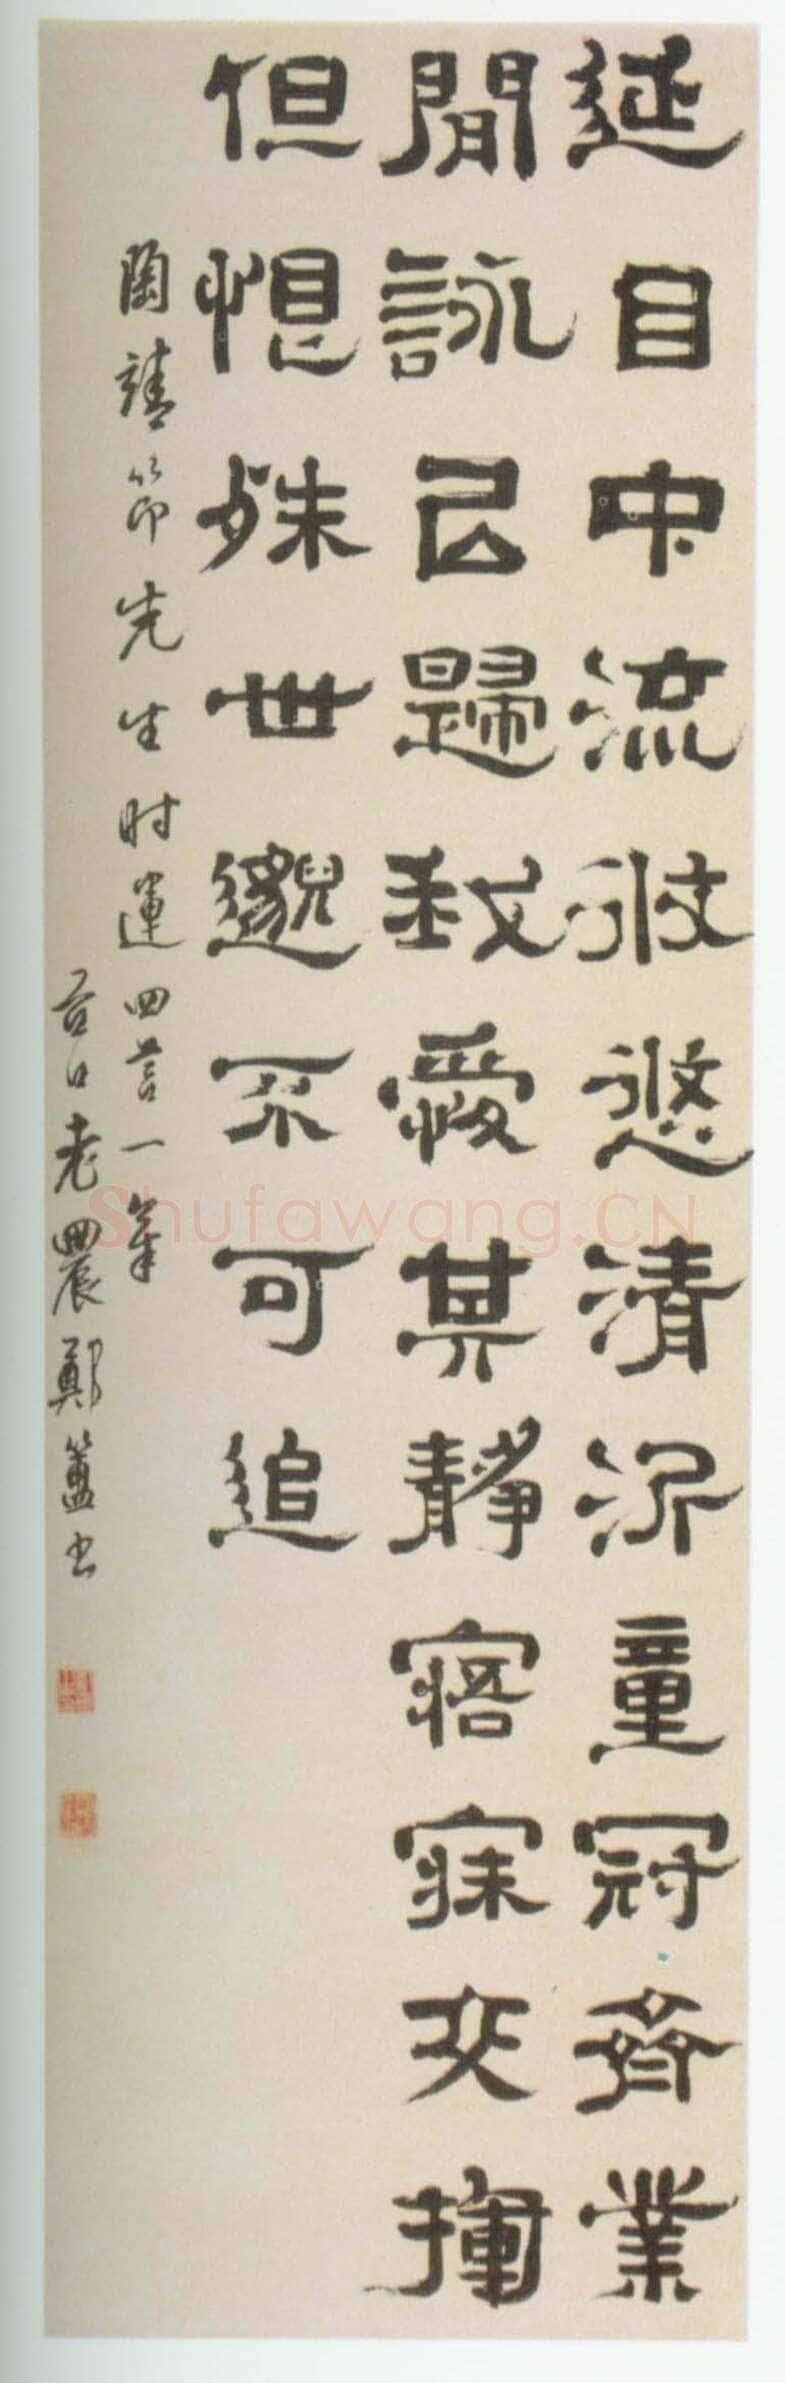 延目中流攸悠清沂童冠齊業
閒詠以歸我愛其靜寤寐交揮
但恨殊世邈不可追
陶靖節先生时運四言一章
谷口老農鄭簠书
Shufawang.CN